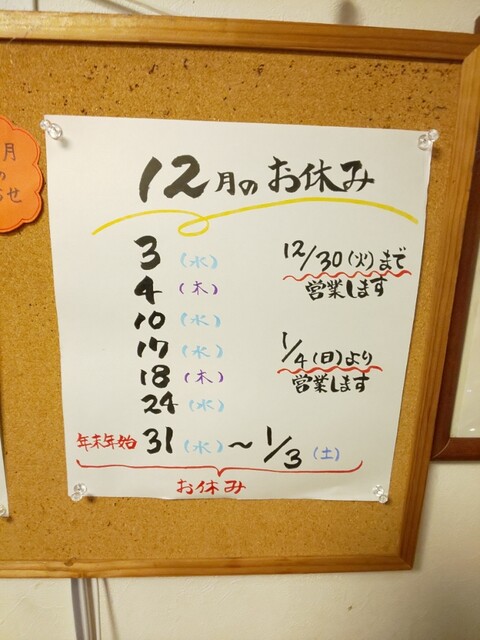 12月のお休み
3（水）
4（木）
10（水）
17（水）
18（木）
24（水）
年末年始 31（水）〜1/3（土）
お休み
12/30（火）まで
営業します
1/4（日）より
営業します
月
の
せ